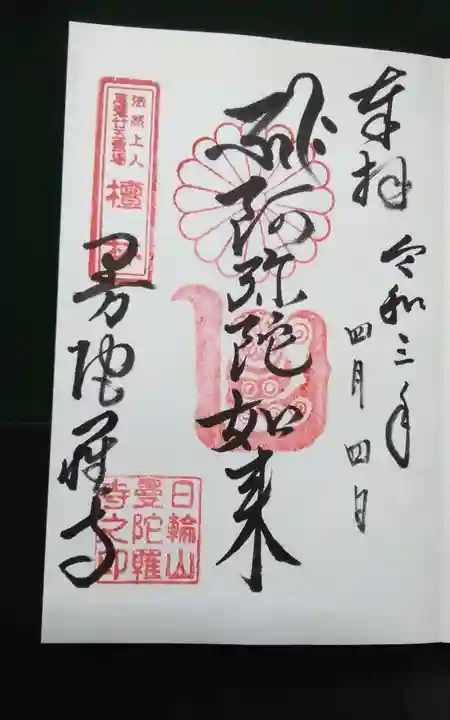 奉拝
令和三年
四月四日
阿弥陀如来
曼陀羅寺
法然上人
霊場
檀林
日輪山
曼陀羅
寺之印